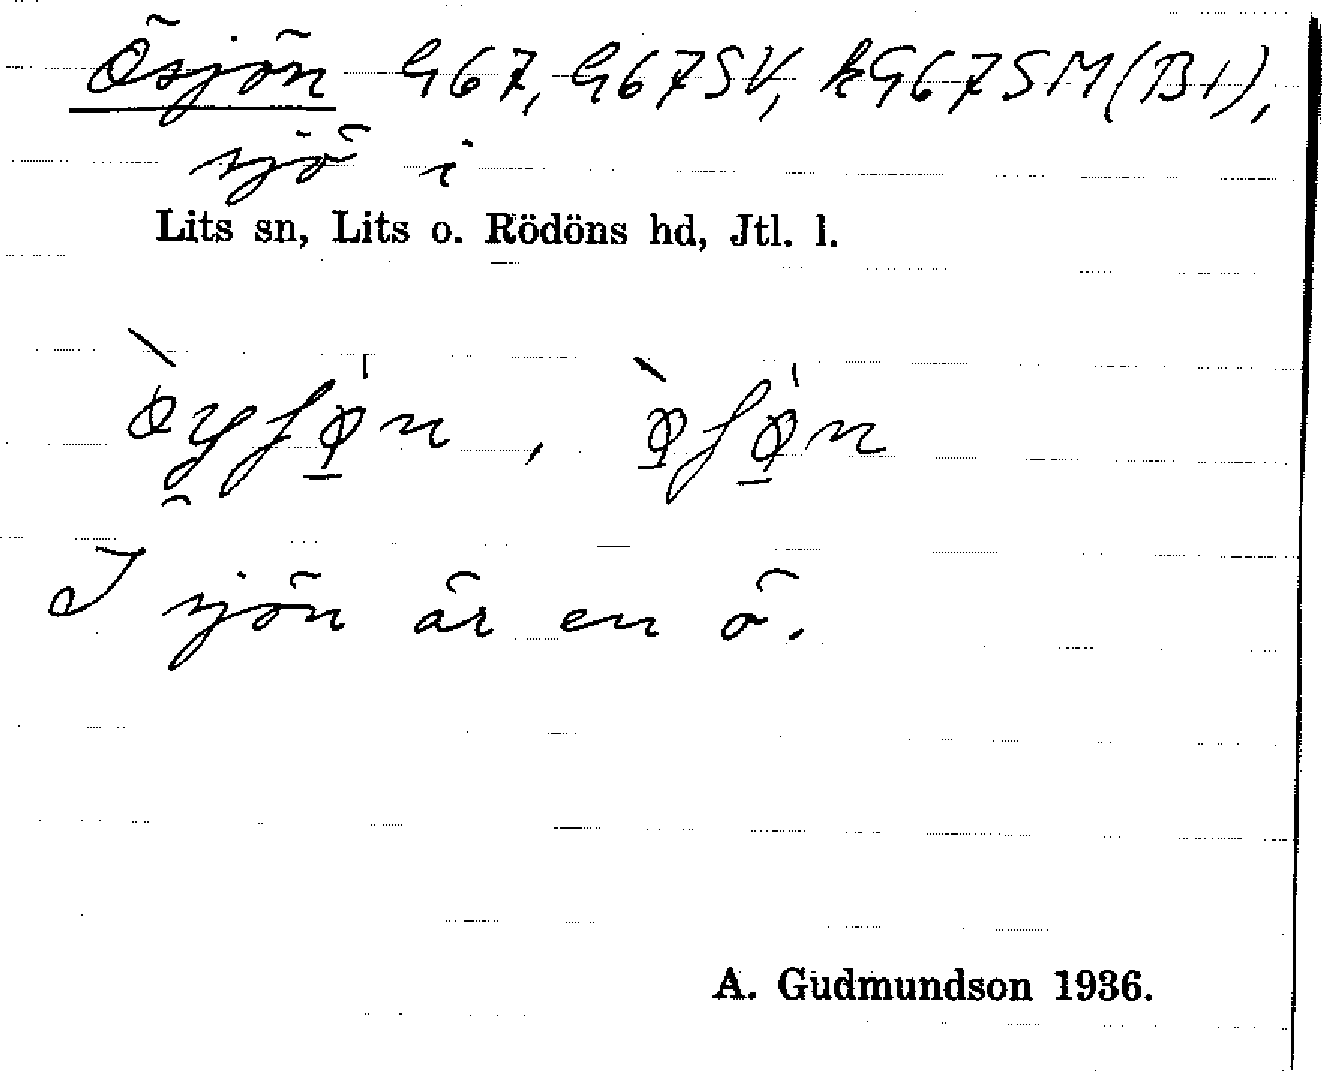 Ösjön G67, G67SV, kG67SM(B1),
sjö i
Lits sn, Lits o. Rödöns hd, Jtl. l.
I sjön är en ö.
A. Gudmundson 1936.